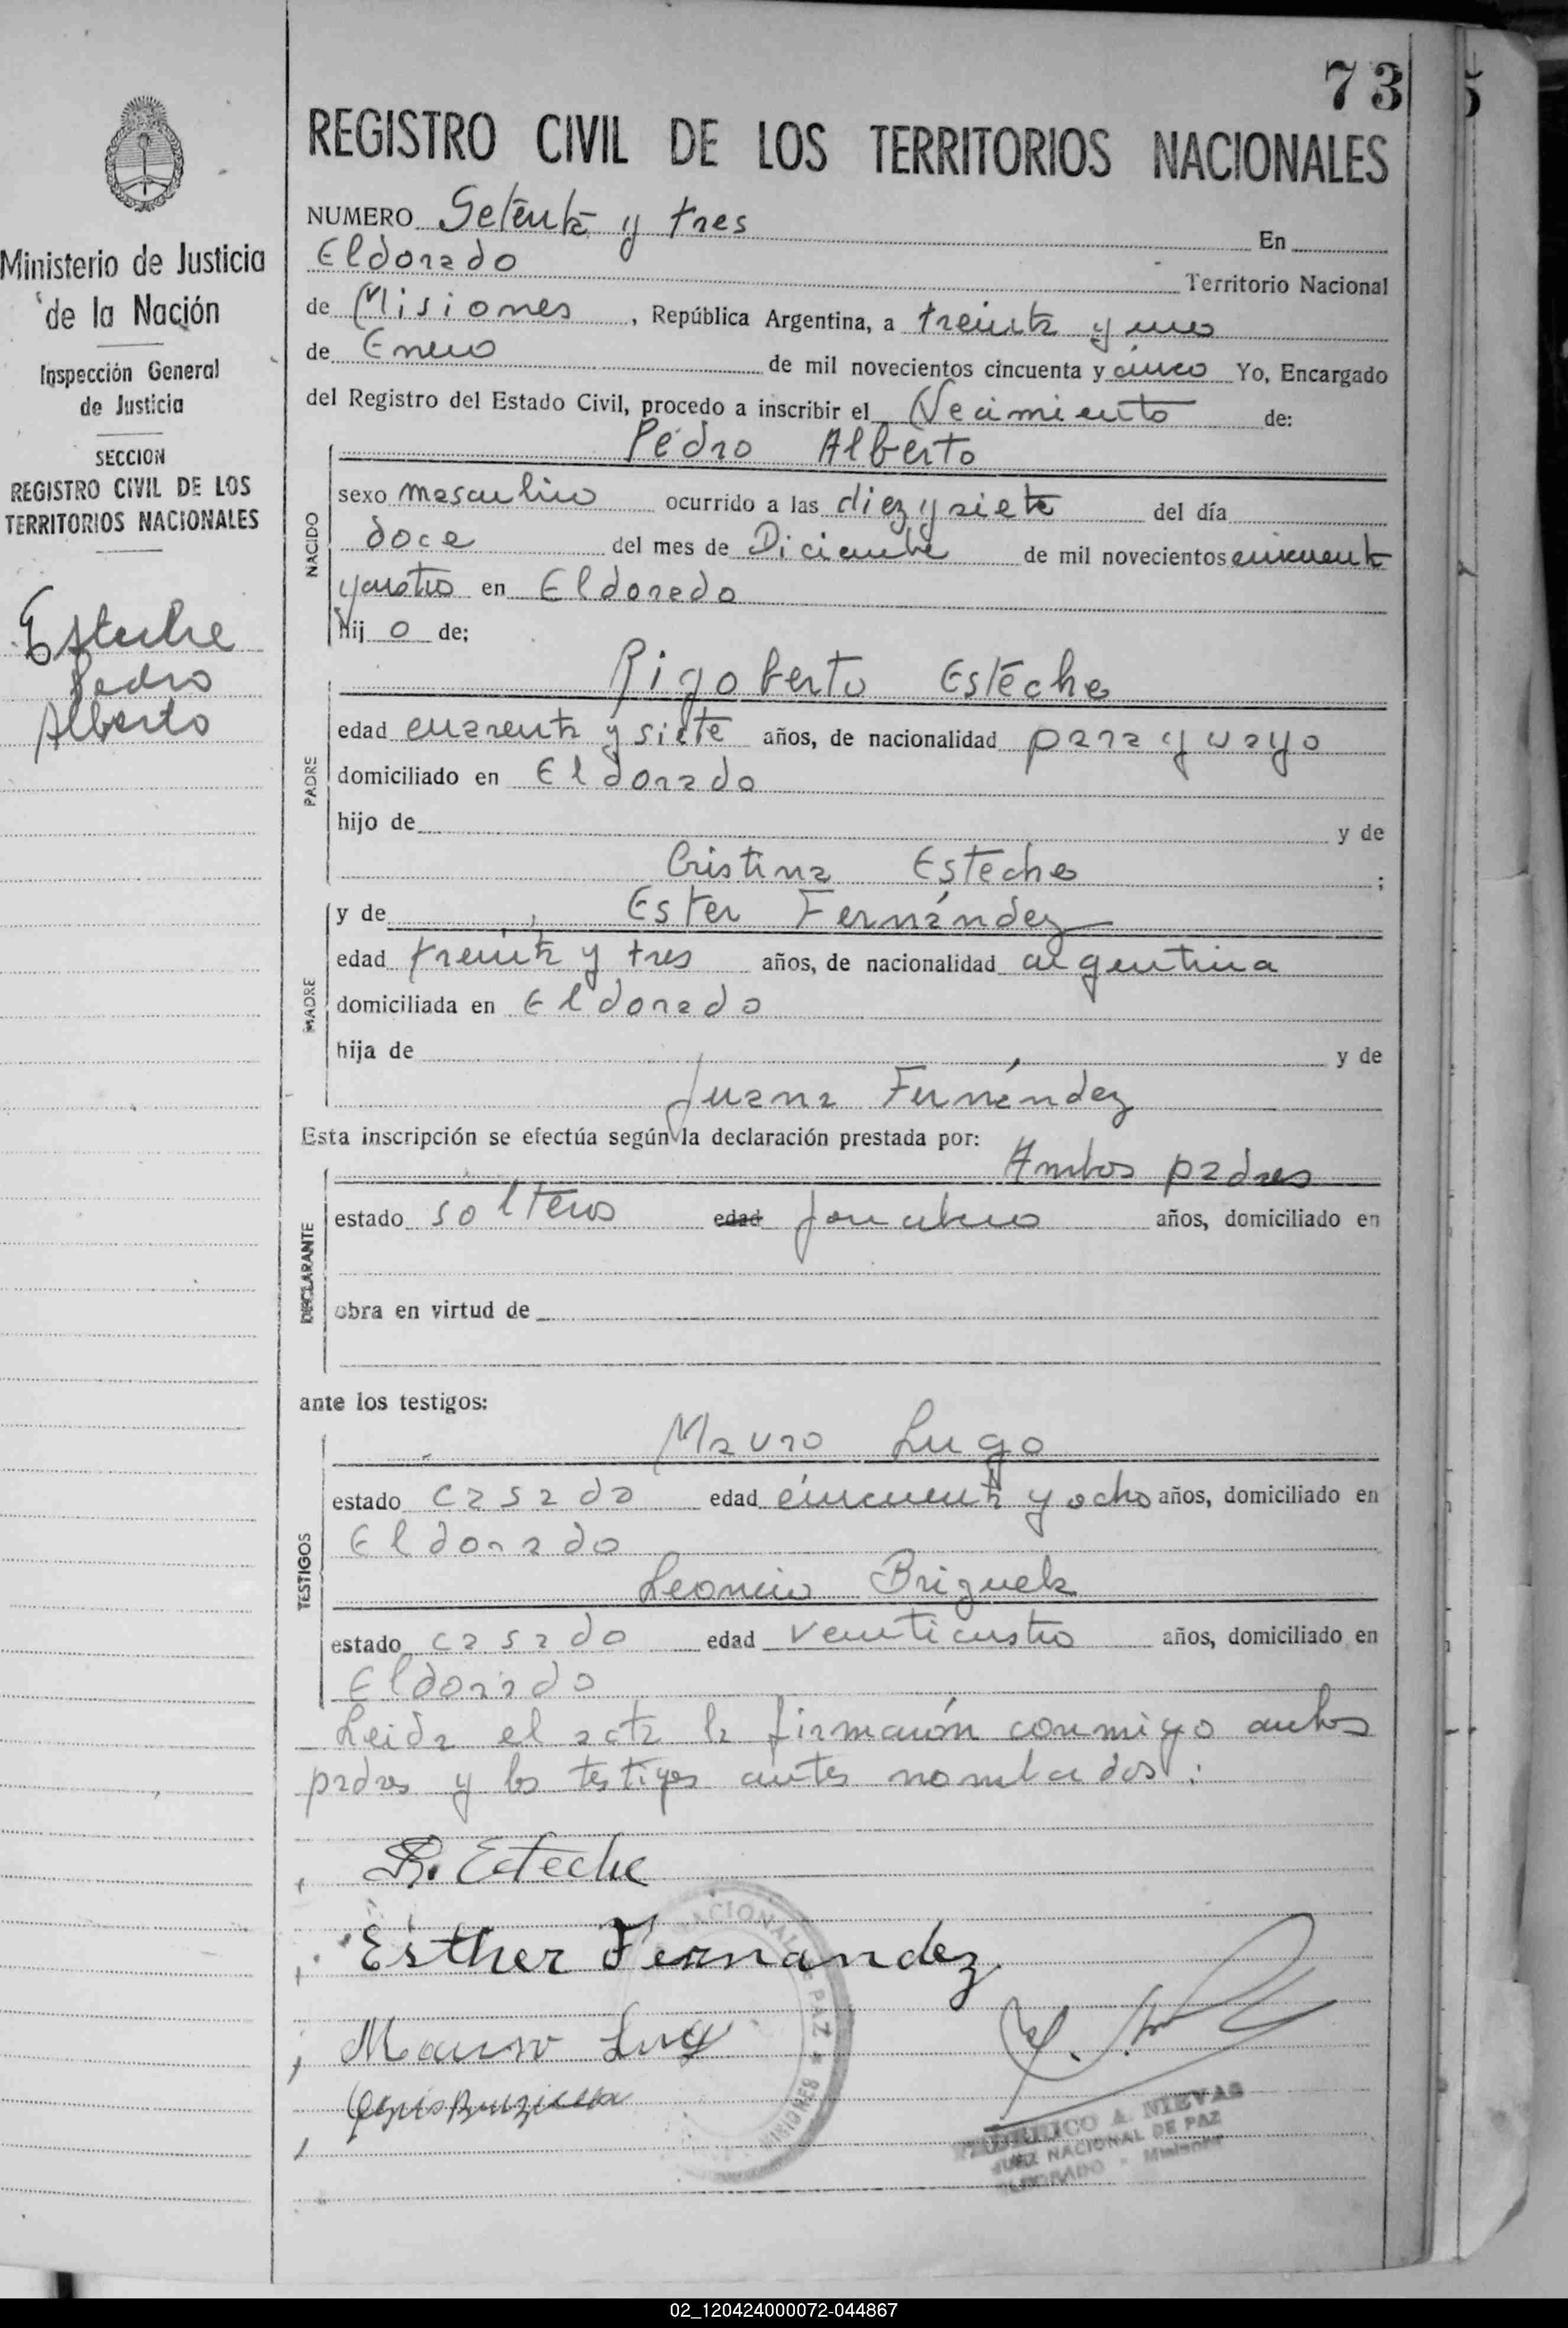 73
REGISTRO CIVIL DE LOS TERRITORIOS NACIONALES
NUMERO Setenta y tres En
Eldorado Territorio Nacional
de Misiones, República Argentina, a treinta y uno
de Enero de mil novecientos cincuenta y cinco Yo, Encargado
del Registro del Estado Civil, procedo a inscribir el Nacimiento de:
Pedro Alberto
NACIDO
sexo masculino ocurrido a las diez y siete del día
doce del mes de Diciembre de mil novecientos cincuenta
y cuatro en Eldorado
hij o de;
Rigoberto Esteche
PADRE
edad cuarenta y siete años, de nacionalidad paraguayo
domiciliado en Eldorado
hijo de y de
Cristina Esteche ;
y de Ester Fernández
MADRE
edad treinta y tres años, de nacionalidad argentina
domiciliada en Eldorado
hija de y de
Juana Fernández
Esta inscripción se efectúa según la declaración prestada por:
Ambos padres
DECLARANTE
estado solteros edad años, domiciliado en
obra en virtud de
ante los testigos:
Mauro Lugo
TESTIGOS
estado casado edad cincuenta y ocho años, domiciliado en
Eldorado
Leoncio Brizuela
estado casado edad veinticuatro años, domiciliado en
Eldorado
Leida el acta la firmarón conmigo ambos
padres y los testigos antes nombrados.
R. Esteche
Esther Fernandez
Mauro Lugo
NACIONAL PAZ MISIONES
FEDERICO A. NIEVAS
JUEZ NACIONAL DE PAZ
ELDORADO - Misiones
Ministerio de Justicia
de la Nación
Inspección General
de Justicia
SECCION
REGISTRO CIVIL DE LOS
TERRITORIOS NACIONALES
Esteche
Pedro
Alberto
02_120424000072-044867